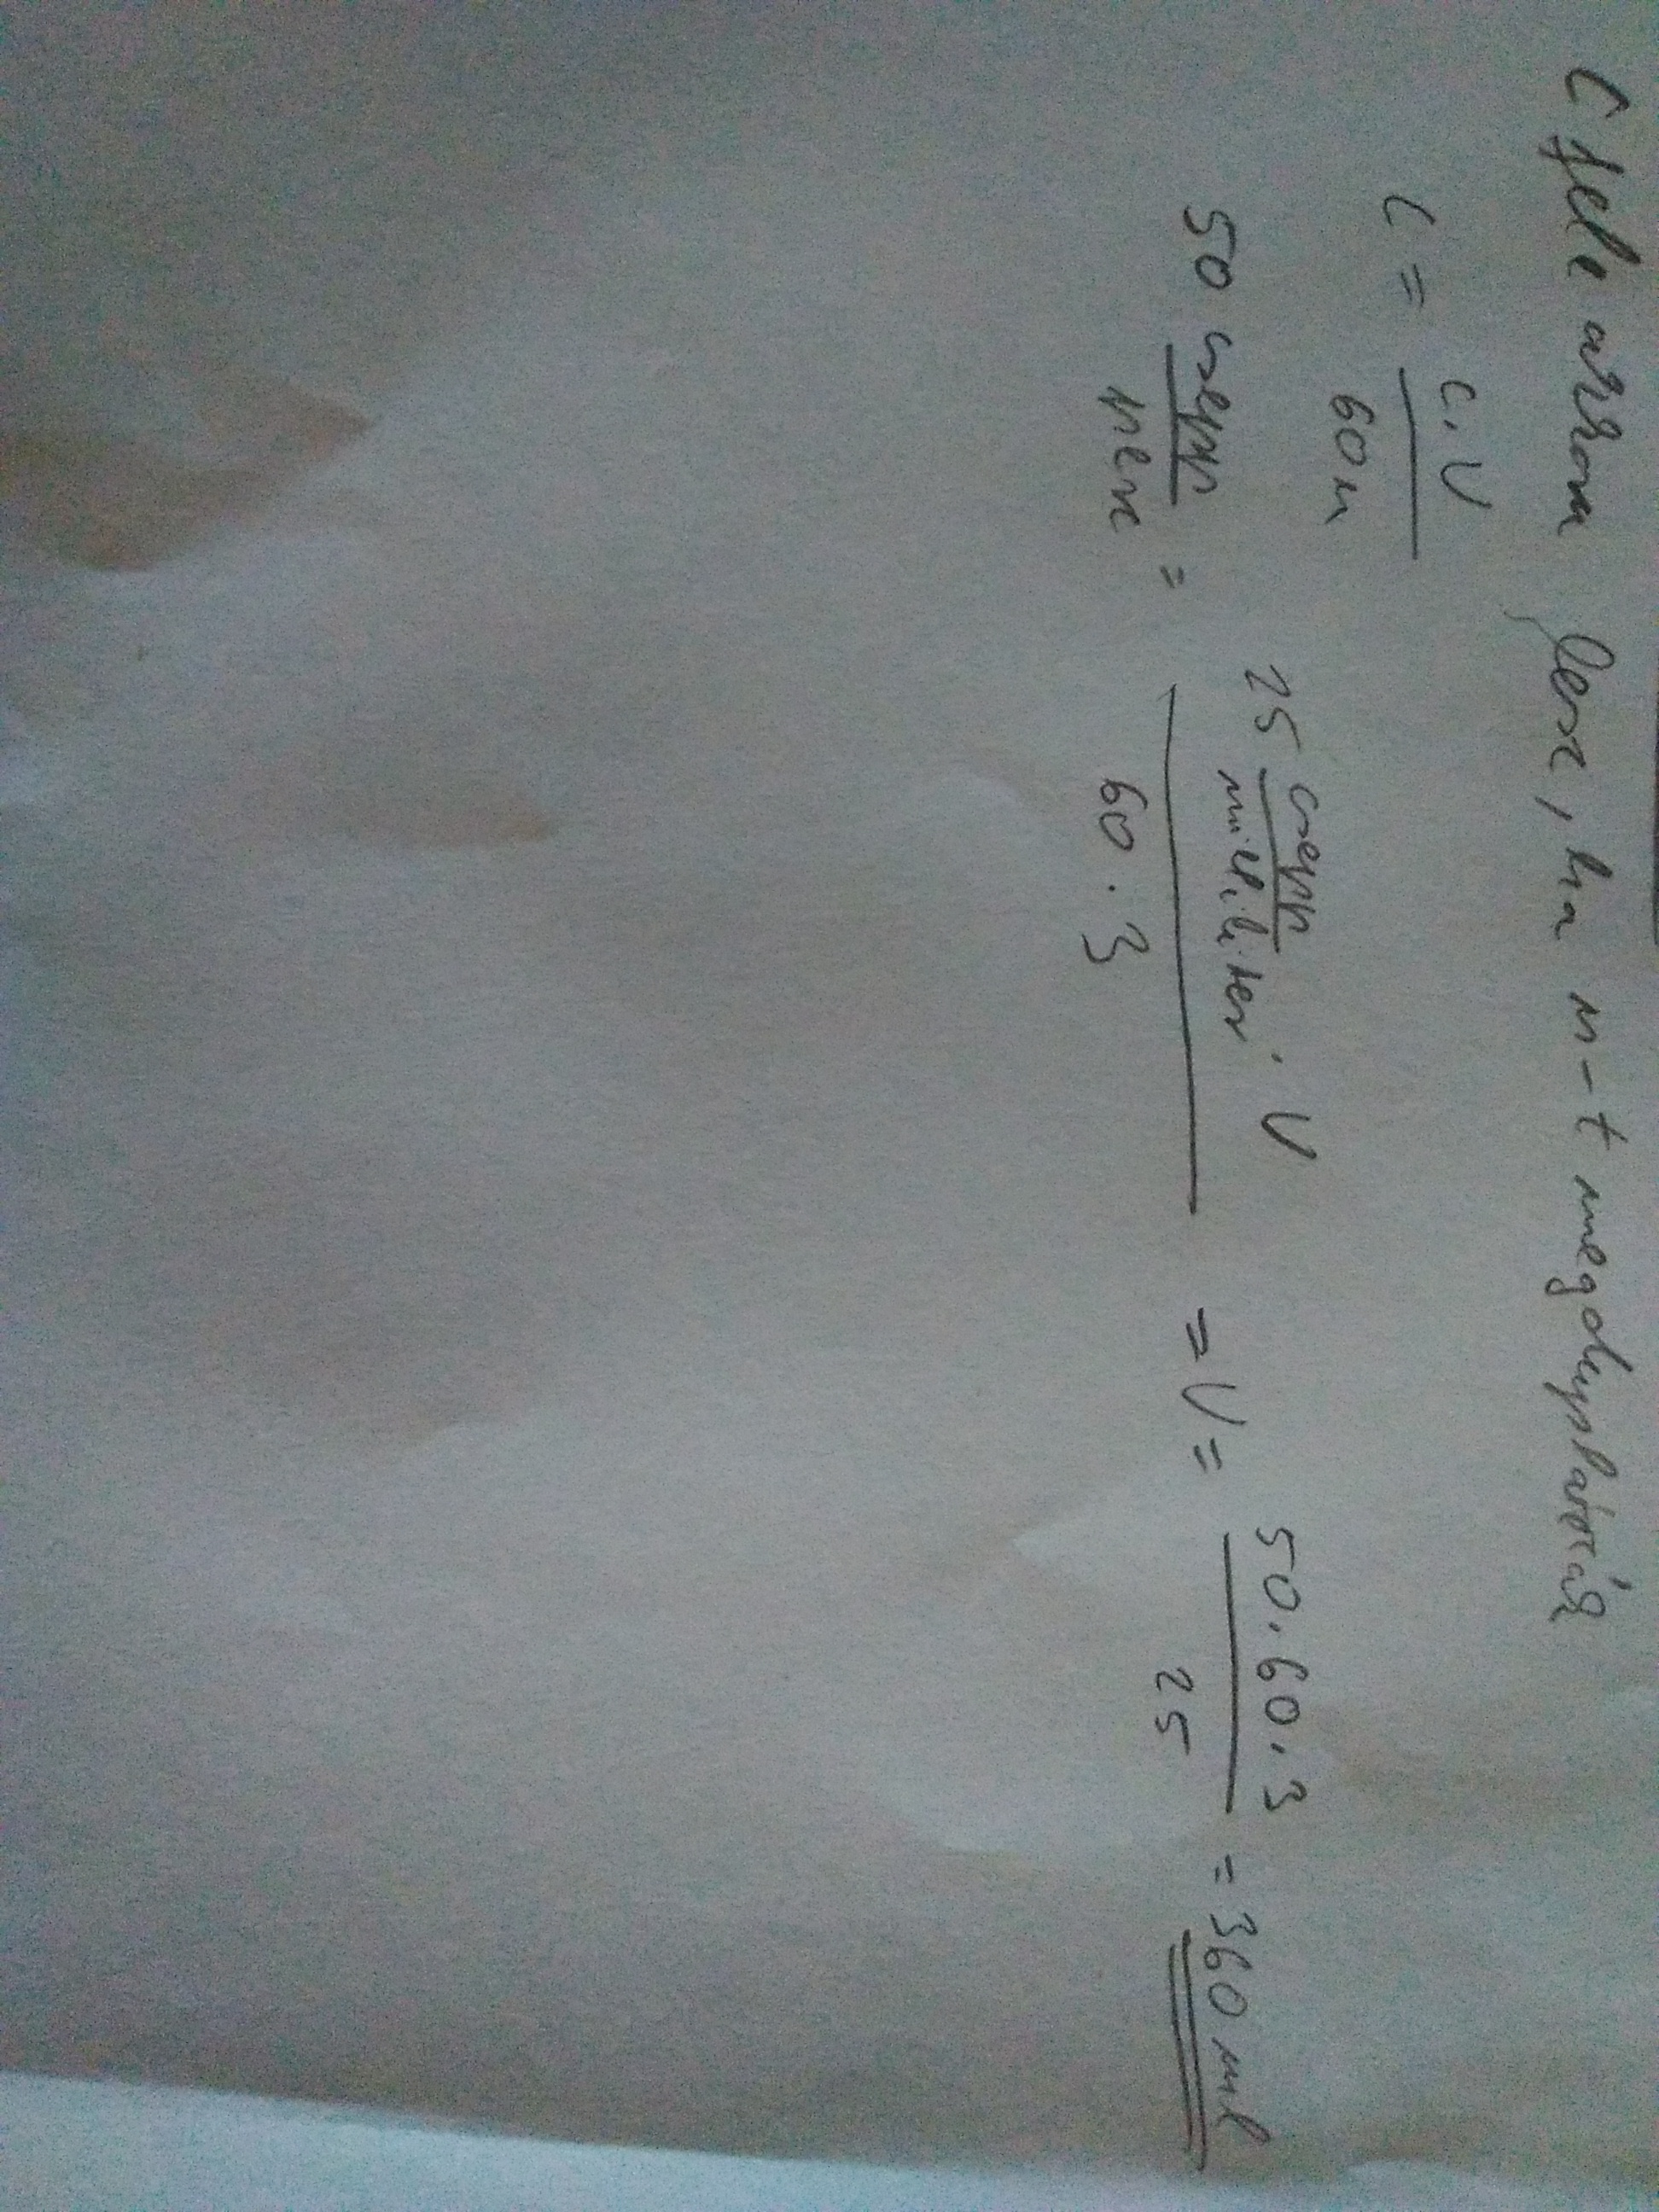 C fele akkora lesz, ha n-t megduplázzuk
C = c.V / 60n
50 csepp/perc = 25 csepp/milliliter . V / 60.3 = V = 50.60.3 / 25 = 360 ml